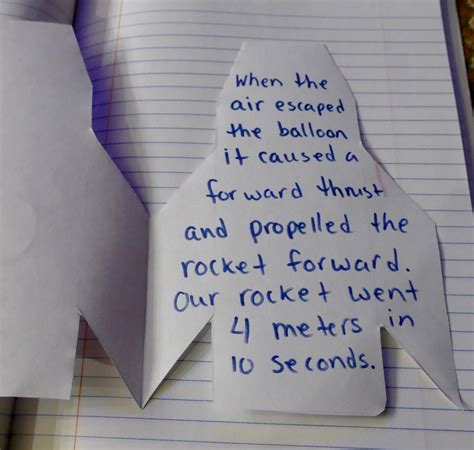 When the
air escaped
the balloon
it caused a
forward thrust
and propelled the
rocket forward.
Our rocket went
4 meters in
10 seconds.